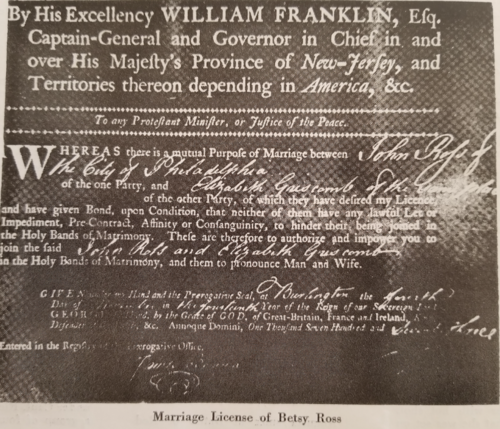 By His Excellency WILLIAM FRANKLIN, Esq.
Captain-General and Governor in Chief in and
over His Majeſty's Province of New-Jerſey, and
Territories thereon depending in America, &c.
To any Proteſtant Miniſter, or Juſtice of the Peace.
WHEREAS there is a mutual Purpoſe of Marriage between John Roſs of
the City of Philadelphia
of the one Party, and Elizabeth Griscomb of the Same place
of the other Party, of which they have deſired my Licence,
and have given Bond, upon Condition, that neither of them have any lawful Let or
Impediment, Pre-Contract, Affinity or Conſanguinity, to hinder their being joined in
the Holy Bands of Matrimony. Theſe are therefore to authorize and impower you to
join the ſaid John Roſs and Elizabeth Griscomb
in the Holy Bands of Matrimony, and them to pronounce Man and Wife.
GIVEN under my Hand and the Prerogative Seal, at Burlington the fourth
Day of in the fourteenth Year of the Reign of our Sovereign
GEORGE by the Grace of GOD, of Great-Britain, France and Ireland,
Defender &c. Annoque Domini, One Thouſand Seven Hundred and
Entered in the Prerogative Office.
Marriage License of Betsy Ross